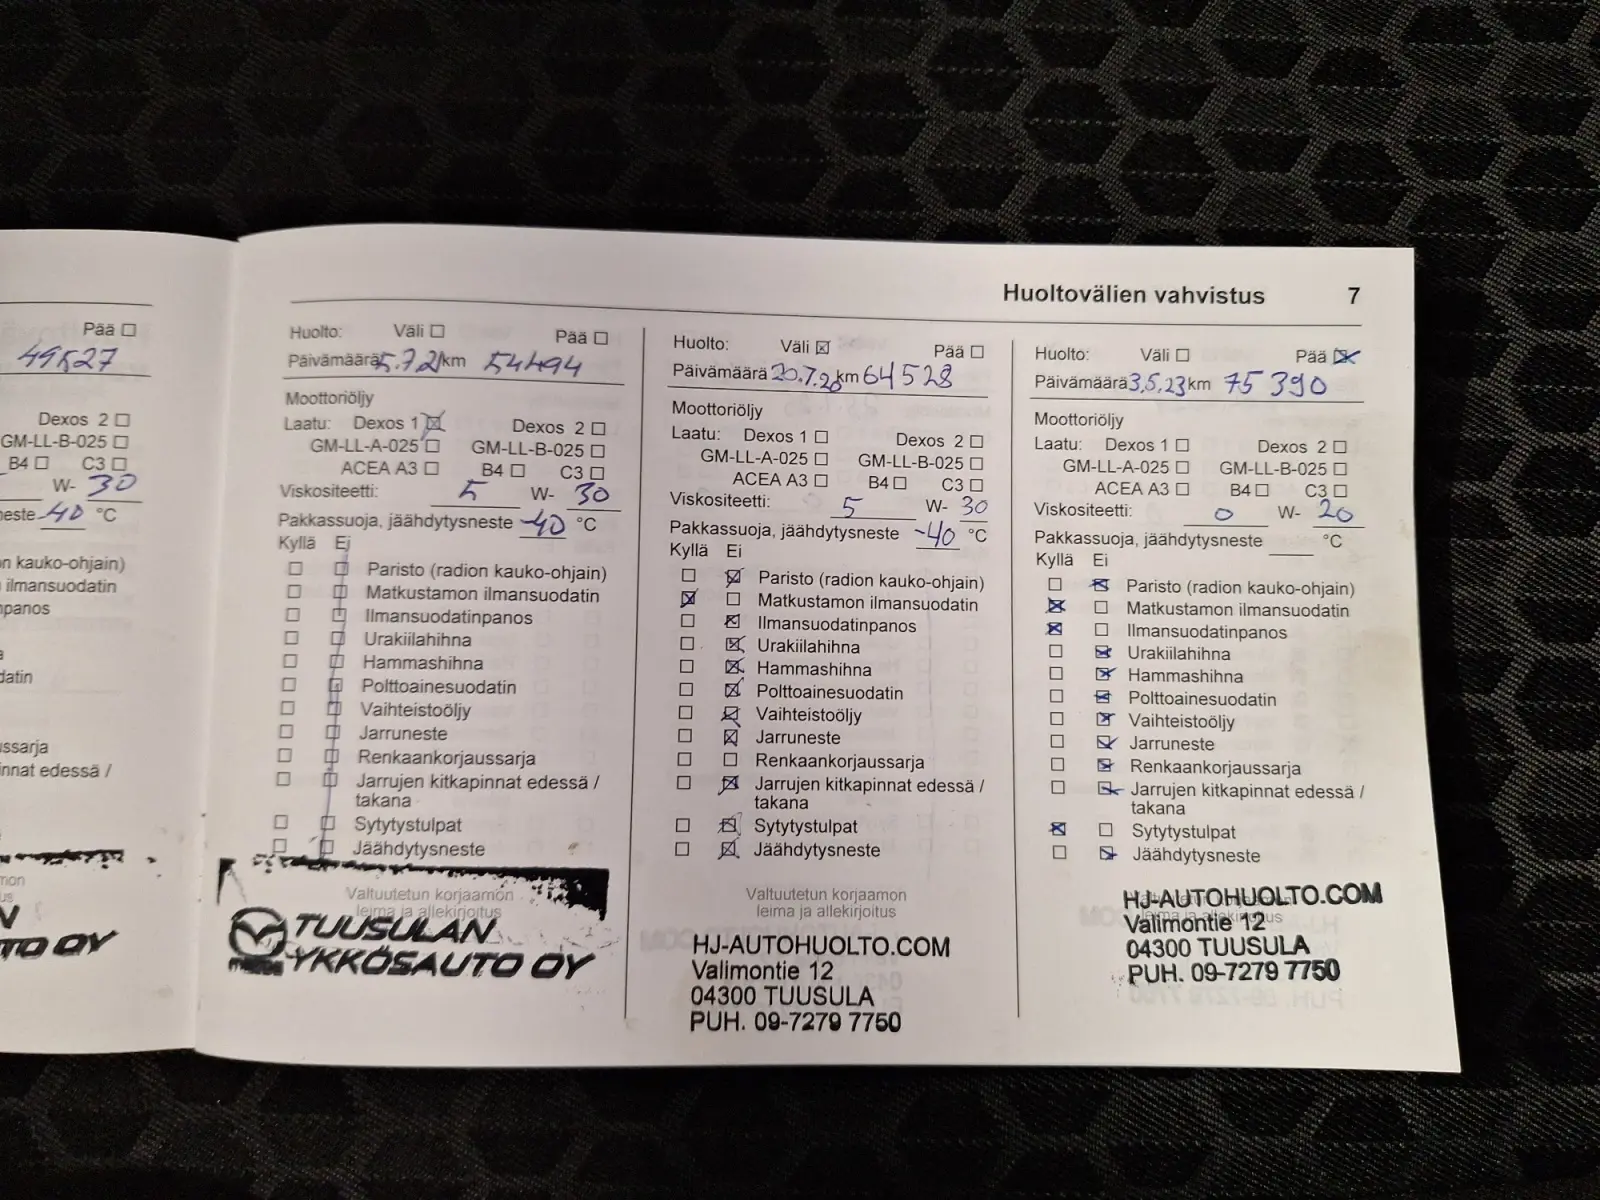 Pää ☐
49527
Dexos 2 ☐
GM-LL-B-025 ☐
B4 ☐ C3 ☐
W- 30
neste -40 °C
on kauko-ohjain)
ilmansuodatin
npanos
datin
ussarja
innat edessä /
mon
us
N
TO OY
Huoltovälien vahvistus 7
Huolto: Väli ☐ Pää ☐
Päivämäärä 5.7.21 km 54494
Moottoriöljy
Laatu: Dexos 1 ☒ Dexos 2 ☐
GM-LL-A-025 ☐ GM-LL-B-025 ☐
ACEA A3 ☐ B4 ☐ C3 ☐
Viskositeetti: 5 W- 30
Pakkassuoja, jäähdytysneste -40 °C
Kyllä Ei
☐ ☐ Paristo (radion kauko-ohjain)
☐ ☐ Matkustamon ilmansuodatin
☐ ☐ Ilmansuodatinpanos
☐ ☐ Urakiilahihna
☐ ☐ Hammashihna
☐ ☐ Polttoainesuodatin
☐ ☐ Vaihteistoöljy
☐ ☐ Jarruneste
☐ ☐ Renkaankorjaussarja
☐ ☐ Jarrujen kitkapinnat edessä /
takana
☐ ☐ Sytytystulpat
☐ ☐ Jäähdytysneste
Valtuutetun korjaamon
leima ja allekirjoitus
TUUSULAN
mazda YKKÖSAUTO OY
Huolto: Väli ☒ Pää ☐
Päivämäärä 20.7.20 km 64528
Moottoriöljy
Laatu: Dexos 1 ☐ Dexos 2 ☐
GM-LL-A-025 ☐ GM-LL-B-025 ☐
ACEA A3 ☐ B4 ☐ C3 ☐
Viskositeetti: 5 W- 30
Pakkassuoja, jäähdytysneste -40 °C
Kyllä Ei
☐ ☒ Paristo (radion kauko-ohjain)
☒ ☐ Matkustamon ilmansuodatin
☐ ☒ Ilmansuodatinpanos
☐ ☒ Urakiilahihna
☐ ☒ Hammashihna
☐ ☒ Polttoainesuodatin
☐ ☒ Vaihteistoöljy
☐ ☒ Jarruneste
☐ ☐ Renkaankorjaussarja
☐ ☒ Jarrujen kitkapinnat edessä /
takana
☐ ☒ Sytytystulpat
☐ ☒ Jäähdytysneste
Valtuutetun korjaamon
leima ja allekirjoitus
HJ-AUTOHUOLTO.COM
Valimontie 12
04300 TUUSULA
PUH. 09-7279 7750
Huolto: Väli ☐ Pää ☒
Päivämäärä 3.5.23 km 75390
Moottoriöljy
Laatu: Dexos 1 ☐ Dexos 2 ☐
GM-LL-A-025 ☐ GM-LL-B-025 ☐
ACEA A3 ☐ B4 ☐ C3 ☐
Viskositeetti: 0 W- 20
Pakkassuoja, jäähdytysneste °C
Kyllä Ei
☐ ☒ Paristo (radion kauko-ohjain)
☒ ☐ Matkustamon ilmansuodatin
☒ ☐ Ilmansuodatinpanos
☐ ☒ Urakiilahihna
☐ ☒ Hammashihna
☐ ☒ Polttoainesuodatin
☐ ☒ Vaihteistoöljy
☐ ☒ Jarruneste
☐ ☒ Renkaankorjaussarja
☐ ☒ Jarrujen kitkapinnat edessä /
takana
☒ ☐ Sytytystulpat
☐ ☒ Jäähdytysneste
HJ-AUTOHUOLTO.COM
Valimontie 12
04300 TUUSULA
PUH. 09-7279 7750